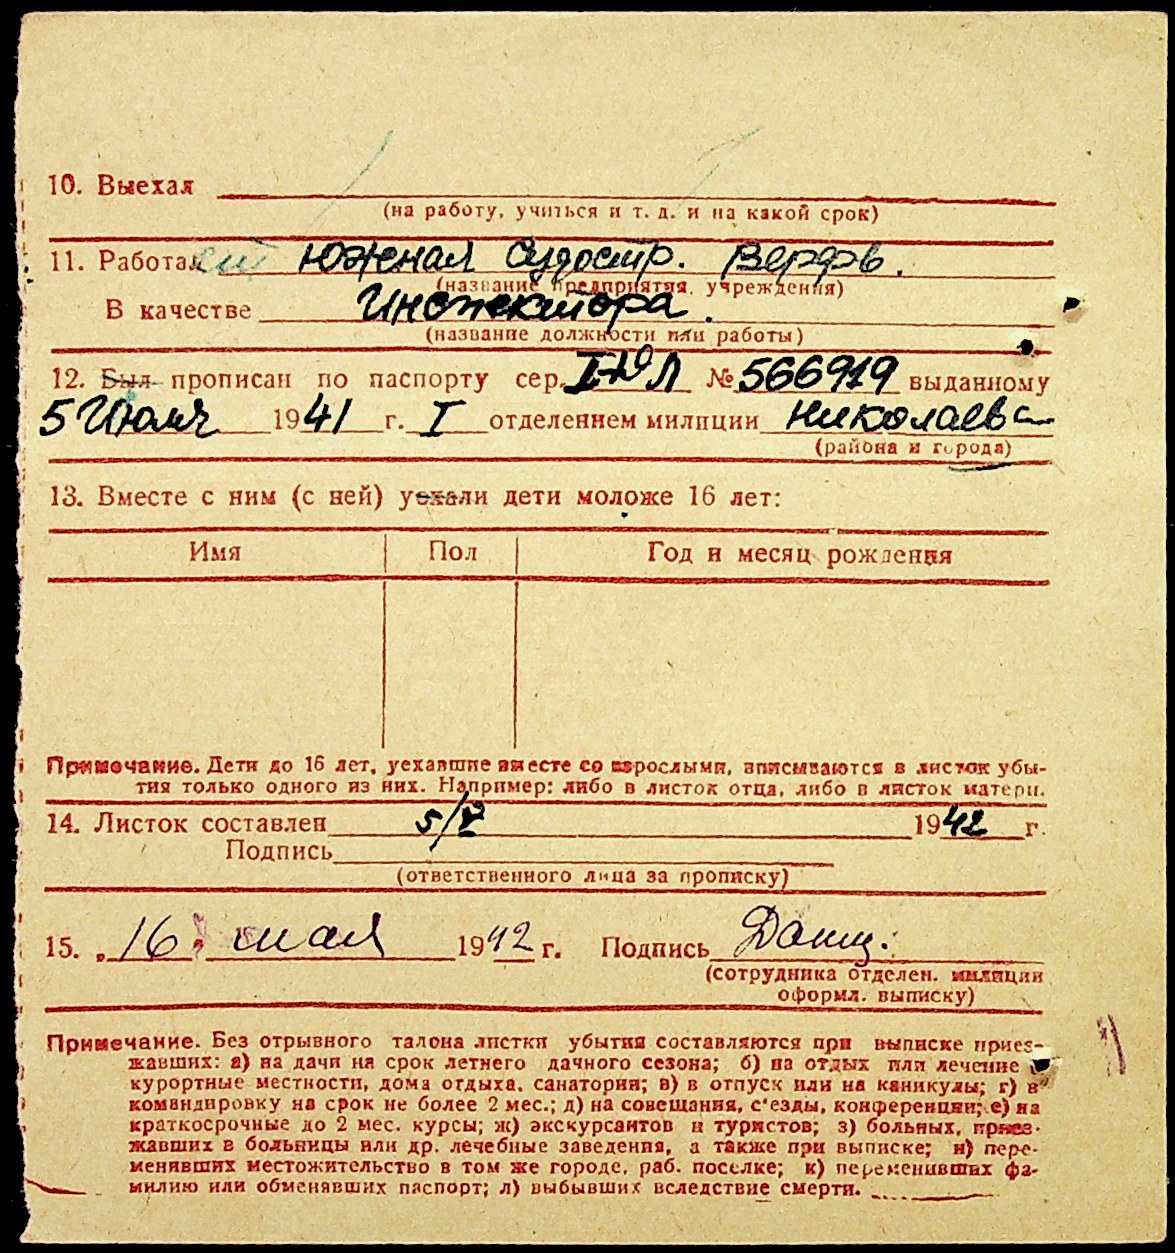 10. Выехал
(на работу, учиться и т. д. и на какой срок)
11. Работает Южная Судостр. Верфь.
(название предприятия, учреждения)
В качестве Инспектора.
(название должности или работы)
12. Был прописан по паспорту сер. № 566919 выданному
5 Июля 1941 г. I отделением милиции Николаева
(района и города)
13. Вместе с ним (с ней) уехали дети моложе 16 лет:
Имя Пол Год и месяц рождения
Примечание. Дети до 16 лет, уехавшие вместе со взрослыми, вписываются в листок убы-
тия только одного из них. Например: либо в листок отца, либо в листок матери.
14. Листок составлен 5/V 1942 г.
Подпись
(ответственного лица за прописку)
15. „16" мая 1942 г. Подпись
(сотрудника отделен. милиции
оформл. выписку)
Примечание. Без отрывного талона листки убытия составляются при выписке приез-
жавших: а) на дачи на срок летнего дачного сезона; б) на отдых или лечение в
курортные местности, дома отдыха, санатории; в) в отпуск или на каникулы; г) в
командировку на срок не более 2 мес.; д) на совещания, с'езды, конференции; е) на
краткосрочные до 2 мес. курсы; ж) экскурсантов и туристов; з) больных, приез-
жавших в больницы или др. лечебные заведения, а также при выписке; и) пере-
менивших местожительство в том же городе, раб. поселке; к) переменивших фа-
милию или обменявших паспорт; л) выбывших вследствие смерти.